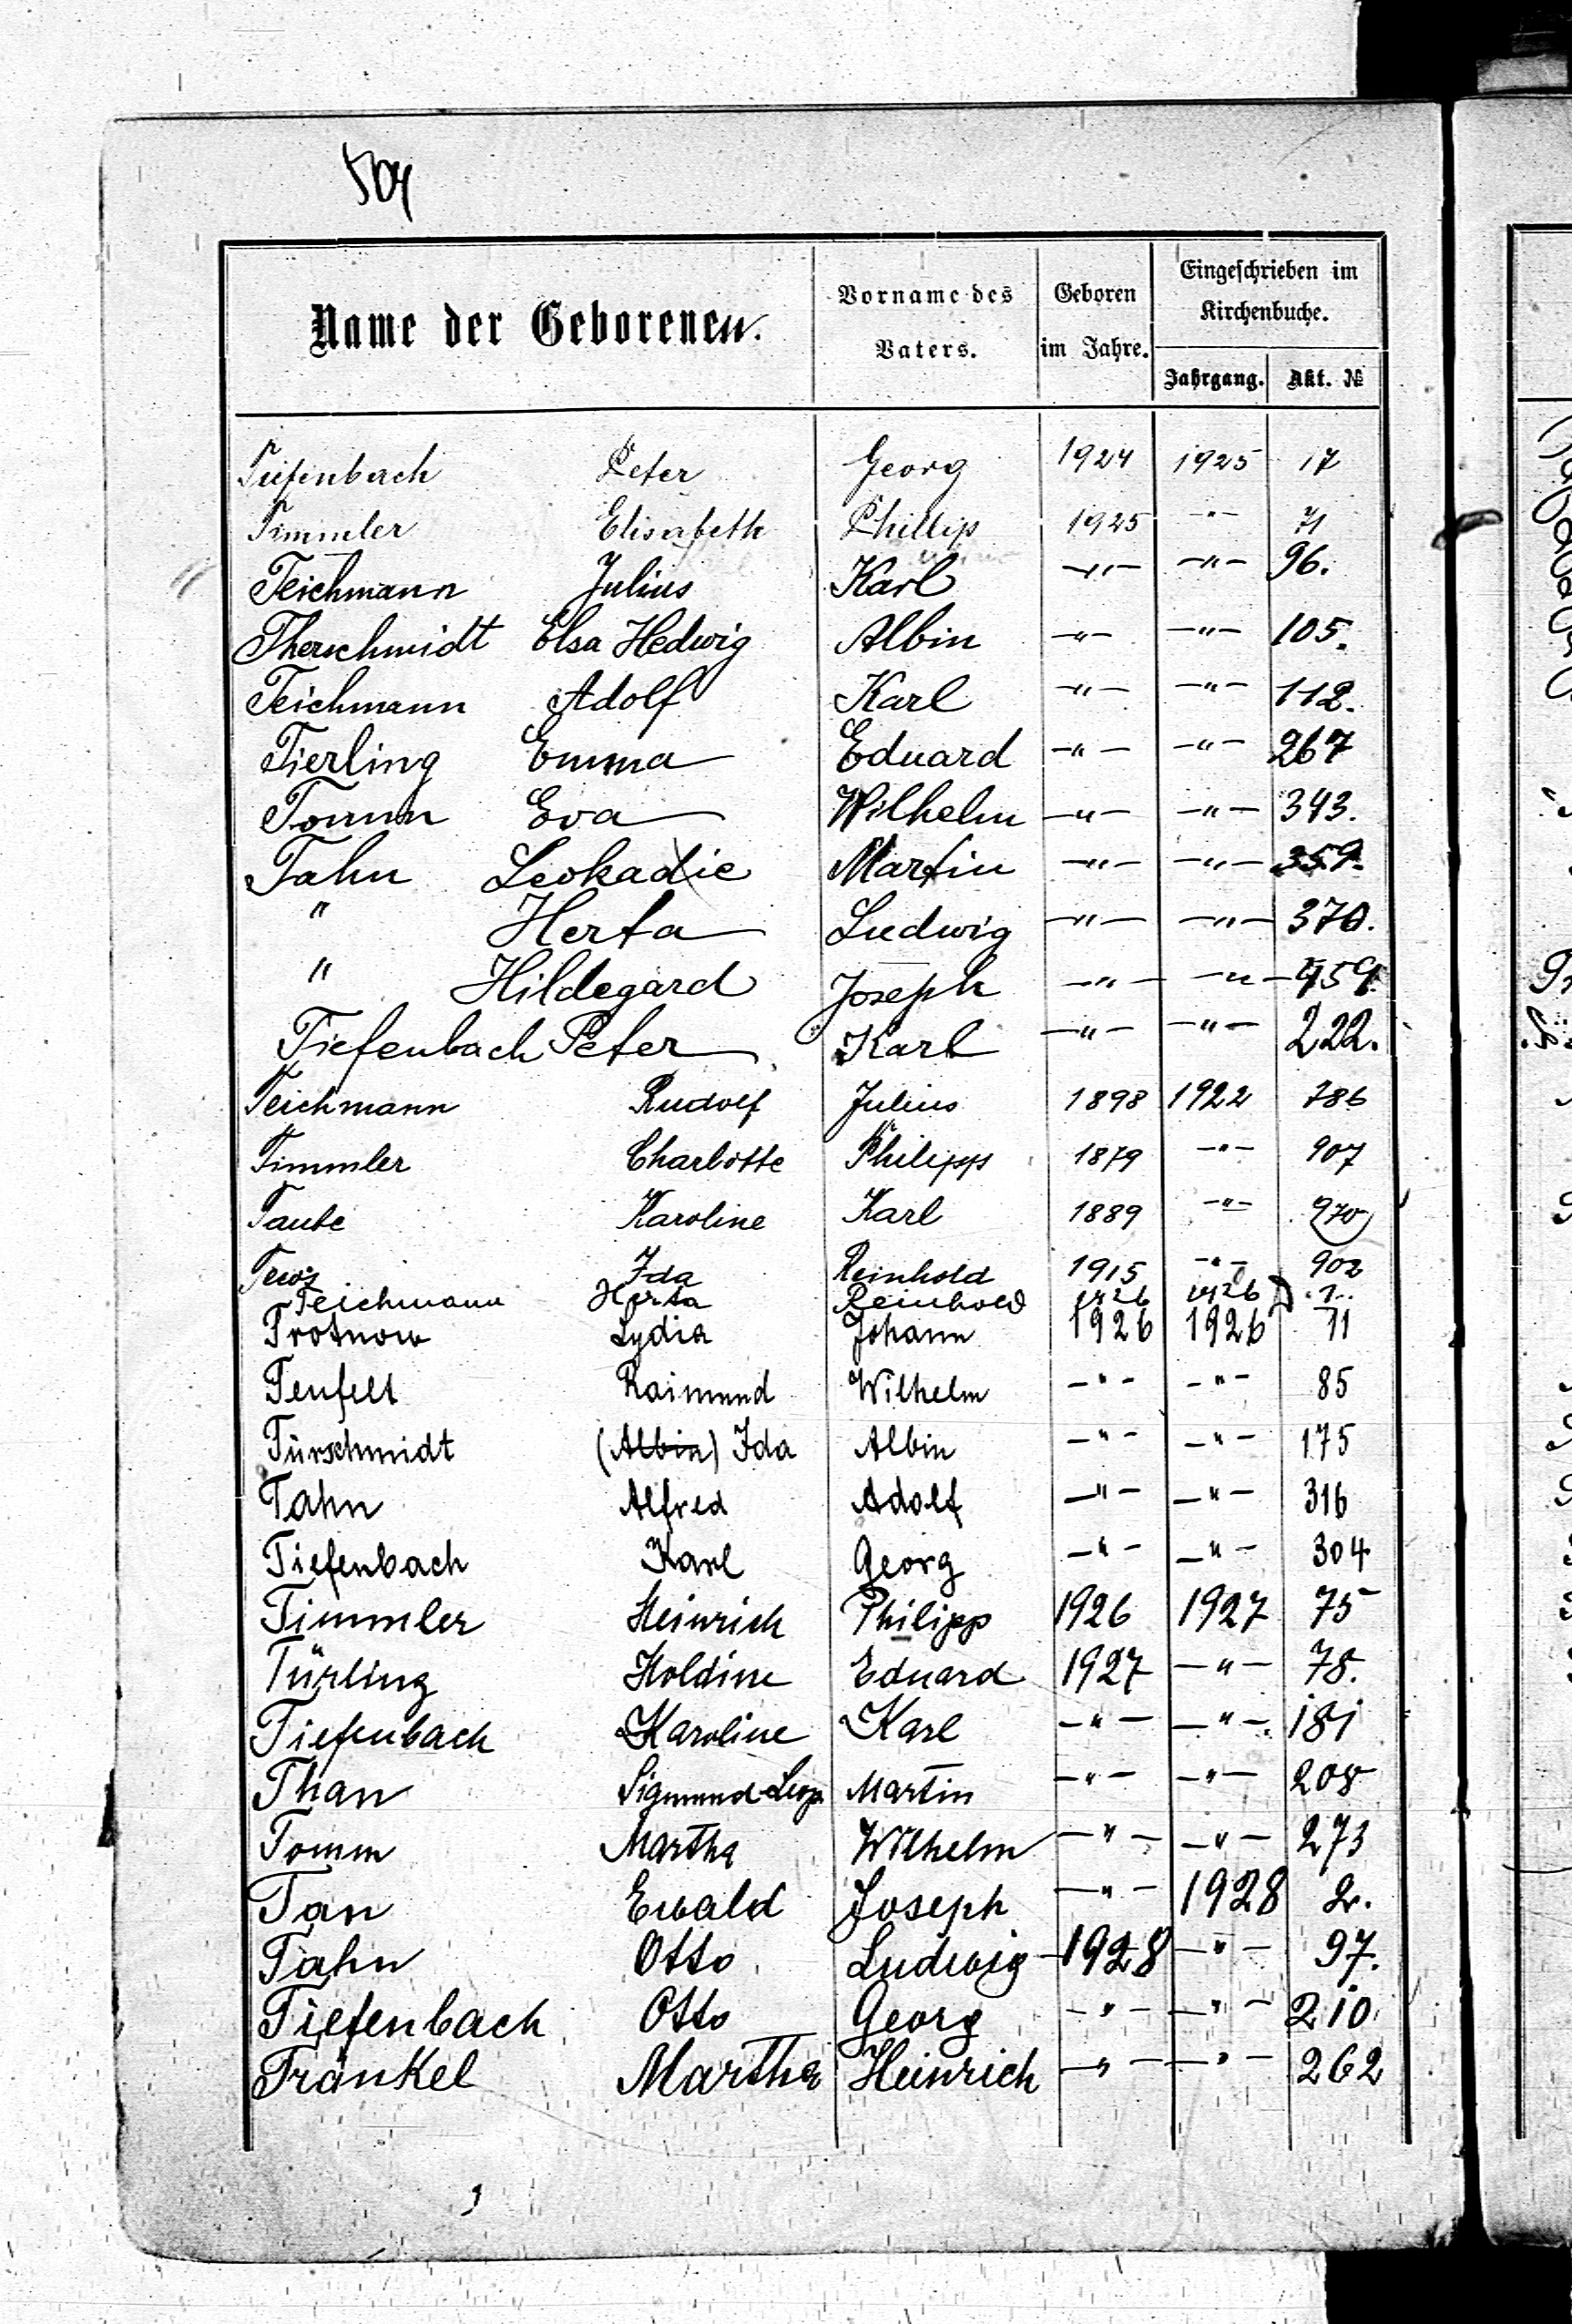 504
Name der Geborenen.
Vorname des Vaters.
Geboren im Jahre.
Eingeschrieben im Kirchenbuche.
Jahrgang. Akt. №
Tiefenbach Peter Georg 1924 1925 17
Timmler Elisabeth Phillip 1925 -"- 71
Teichmann Julius Karl -"- -"- 96.
Therschmidt Elsa Hedwig Albin -"- -"- 105.
Teichmann Adolf Karl -"- -"- 112.
Tierling Emma Eduard -"- -"- 267
Tomm Eva Wilhelm -"- -"- 343.
Tahn Leokadie Martin -"- -"- 359.
" Herta Ludwig -"- -"- 370.
" Hildegard Joseph -"- -"- 459.
Tiefenbach Peter Karl -"- -"- 222.
Teichmann Rudolf Julius 1898 1922 786
Timmler Charlotte Philipp 1879 -"- 907
Taube Karoline Karl 1889 -"- 970
Ida Reinhold 1915 -"- 902
Teichmann Herta Reinhold 1926 1926
Trotnow Lydia Johann 1926 1926 71
Teufelt Raimund Wilhelm -"- -"- 85
Türschmidt (Albin) Ida Albin -"- -"- 175
Tahn Alfred Adolf -"- -"- 316
Tiefenbach Karl Georg -"- -"- 304
Timmler Heinrich Philipp 1926 1927 75
Türling Holdine Eduard 1927 -"- 78.
Tiefenbach Karoline Karl -"- -"- 181
Than Sigmund-Leop Martin -"- -"- 208
Tomm Martha Wilhelm -"- -"- 273
Tan Ewald Joseph -"- 1928 2.
Tahn Otto Ludwig 1928 -"- 97.
Tiefenbach Otto Georg -"- -"- 210
Tränkel Martha Heinrich -"- -"- 262